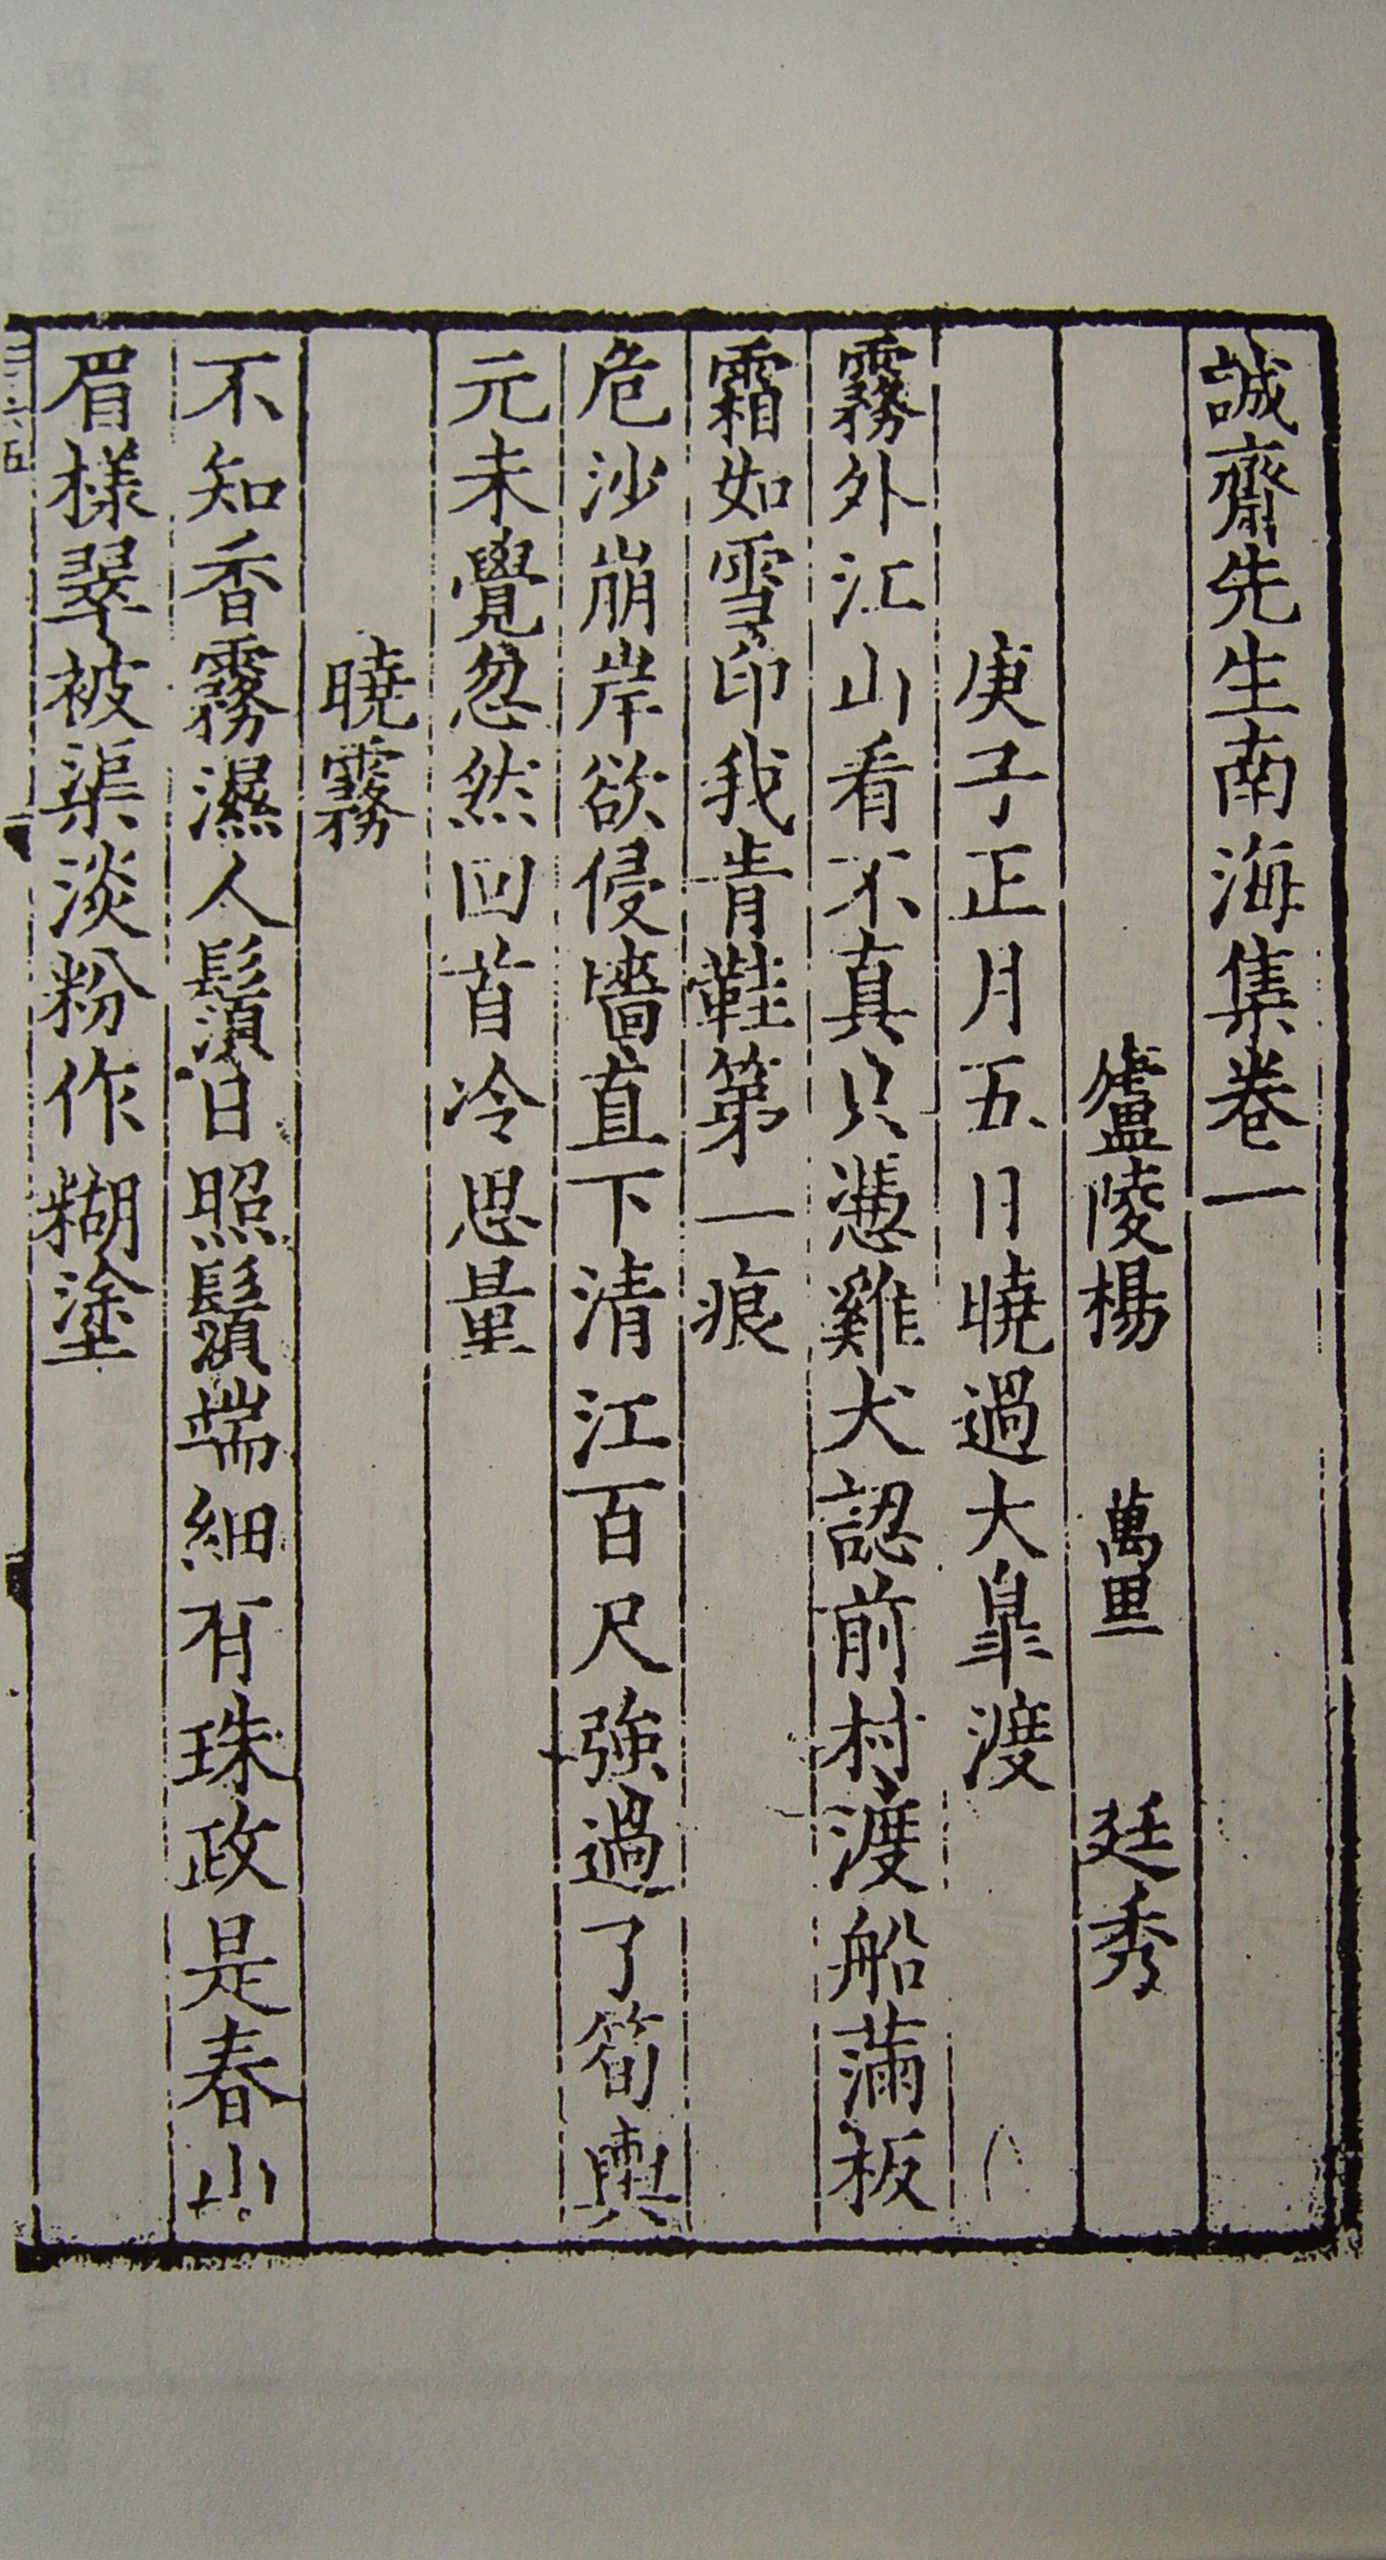 誠齋先生南海集卷一
廬陵楊 萬里 廷秀
庚子正月五日曉過大皐渡
霧外江山看不真只憑雞犬認前村渡船滿板
霜如雪印我青鞋第一痕
危沙崩岸欲侵墻直下清江百尺強過了筍輿
元未覺忽然回首冷思量
曉霧
不知香霧濕人鬚日照鬚端細有珠政是春山
眉樣翠被渠淡粉作糊塗